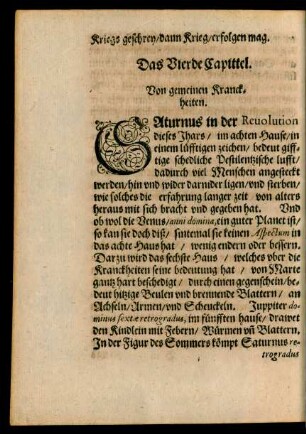 Kriegs geschrey/dann Krieg/erfolgen mag.
Das Vierde Capittel.
Von gemeinen Kranck-
heiten.
SAturnus in der Reuolution
dieses Jhars/ im achten Hause/in
einem lüfftigen zeichen/ bedeut giff-
tige schedliche Pestilentzische lufft/
dadurch viel Menschen angesteckt
werden/hin vnd wider darnider ligen/vnd sterben/
wie solches die erfahrung langer zeit von alters
heraus mit sich bracht vnd gegeben hat. Vnd
ob wol die Venus/ domina, ein guter Planet ist/
so kan sie doch diß/ sintemal sie keinen Aspectum in
das achte Haus hat / wenig endern oder bessern.
Darzu wird das sechste Haus / welches vber die
Kranckheiten seine bedeutung hat / von Marte
gantz hart beschedigt / durch einen gegenschein/be-
deut hitzige Beulen vnd brennende Blattern / an
Achseln/Armen/vnd Schenckeln. Juppiter do-
minus sextæ retrogradus, im fünfften hause/ drawet
den Kindlein mit Febern/ Würmen vñ Blattern.
In der Figur des Sommers kömpt Saturnus re-
trogradus